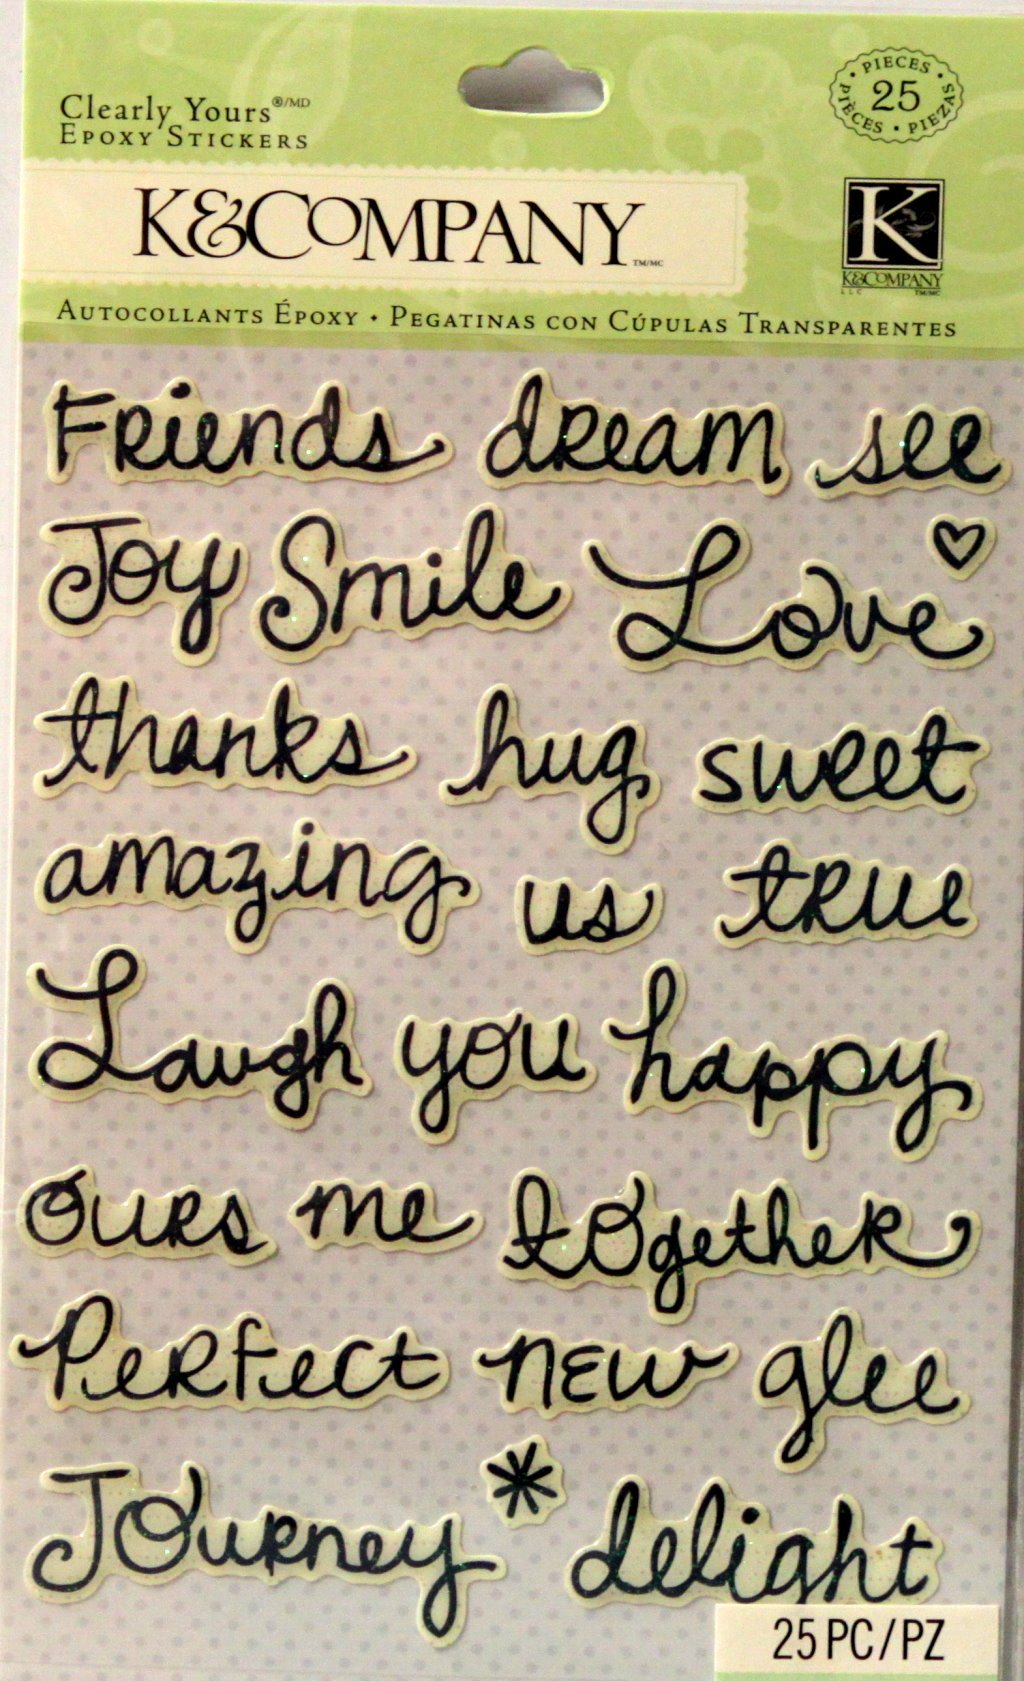 Clearly Yours®/MD
Epoxy Stickers
PIECES • PIEZAS • PIÈCES •
25
K&COMPANY TM/MC
K
K&COMPANY
LLC TM/MC
Autocollants Époxy • Pegatinas con Cúpulas Transparentes
Friends dream see
Joy Smile Love
thanks hug sweet
amazing us true
Laugh you happy
ours me together
Perfect new glee
Journey * delight
25 PC/PZ